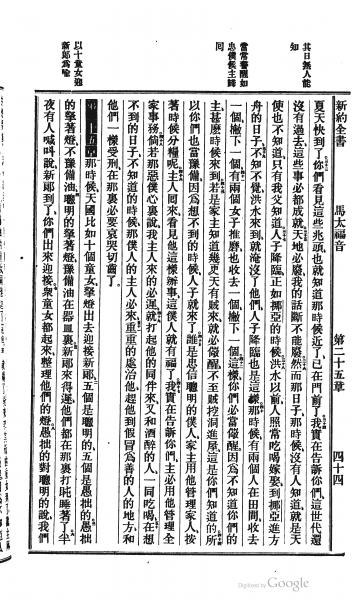 新約全書 馬太福音 第二十五章 四十四
其日無人能
知
當常警醒如
忠僕候主歸
回
以十童女迎
新郞爲喩
夏天快到了你們看見這些兆頭也就知道那時候近了已在門前了我實在告訴你們這世代還
沒有過去這些事必都成就天地必廢我的話斷不能廢然而那日子那時候沒有人知道就是天
使也不知道只有我父知道人子降臨正如挪亞的時候洪水以前人照常吃喝嫁娶到挪亞進方
舟的日子不知不覺洪水來到就淹沒了他們人子降臨也是這樣那時候有兩個人在田間收去
一個撇下一個有兩個女子推磨也收去一個撇下一個這樣你們必當儆醒因爲不知道你們的
主甚麽時候來到若是家主知道幾更天有賊來就必儆醒不至賊挖洞進屋這是你們知道的所
以你們也當豫備因爲想不到的時候人子就來了誰是忠信聰明的僕人家主用他管理家人按
著時候分糧呢主人回來看見主他這樣辦事這僕人就有福了我實在告訴你們主必用他管理全
家事務倘若那惡僕心裏說我主人來的必遲就打起他同伴來又和酒醉的人一同吃喝在想
不到的日子不知道的時候那僕人的主人必來重重的處治他趕他到假冒爲善的人的地方和
他們一樣受刑在那裏必要哀哭切齒了
第二十五章 那時候天國比如十個童女拏燈出去迎接新郞五個是聰明的五個是愚拙的愚拙
的拏著燈不豫備油聰明的拏著燈豫備油在器皿裏新郞來得遲他們都在那裏打盹睡著了半
夜有人喊叫說新郞到了你們出來迎接衆童女都起來整理他們的燈愚拙的對聰明的說我們
Digitized by Google